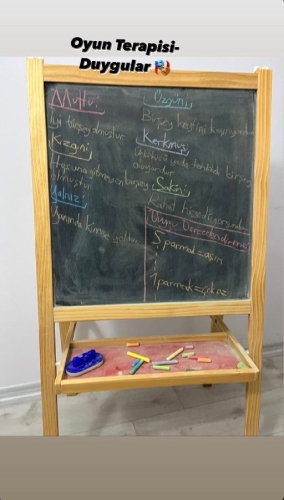 Oyun Terapisi-
Duygular
Mutlu;
İyi birşey olmuştur
Kızgın;
Hoşuna gitmeyen birşey
olmuştur
Yalnız;
Yanında kimse yoktur
Üzgün;
Birşey keyfini kaçırmıştır
Korkmuş;
birşey
Sakin;
Rahat hissediyorsundur
Duygu Derecelendirmesi
5 parmak=aşırı
1 parmak=çok az